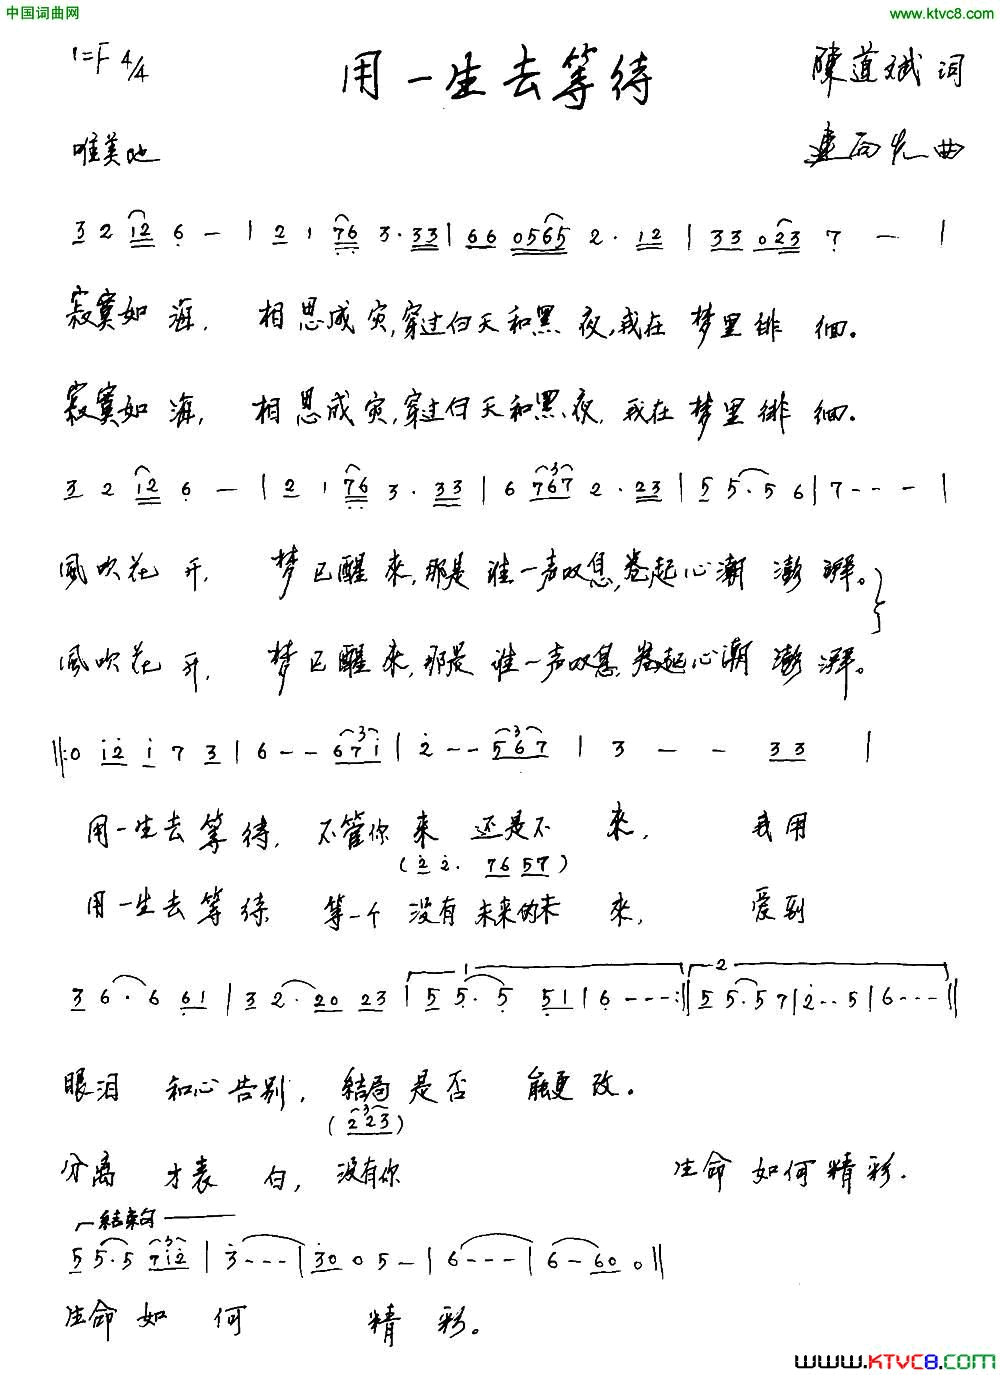 中国词曲网
www.ktvc8.com
1=F 4/4
用一生去等待
陳道斌 词
唯美地
曲
3 2 12 6 - | 2 1 76 3. 33 | 66 0565 2. 12 | 33 023 7 - |
寂寞如海，相思成灾，穿过白天和黑夜，我在梦里徘徊。
寂寞如海，相思成灾，穿过白天和黑夜，我在梦里徘徊。
3 2 12 6 - | 2 1 76 3. 33 | 6 767 2. 23 | 5 5. 5 6 | 7 - - - |
風吹花开，梦已醒來，那是谁一声叹息，卷起心潮澎湃。
風吹花开，梦已醒來，那是谁一声叹息，卷起心潮澎湃。
‖: 0 12 1 7 3 | 6 - - 671 | 2 - - 567 | 3 - - 33 |
用一生去等待，不管你来还是不来，我用
(2 2. 76 57)
用一生去等待 等一个没有未来的未來，爱到
3 6. 6 61 | 3 2. 20 23 | 1 5 5. 5 51 | 6 - - - :‖ 2 5 5. 5 7 | 2 - - 5 | 6 - - - ‖
眼泪和心告别，结局是否能更改。
(2 23)
分离才表白，没有你 生命如何精彩.
结束句
5 5. 5 712 | 3 - - - | 30 0 5 - | 6 - - - | 6 - 60 0 ‖
生命如何精彩。
www.KTVC8.com